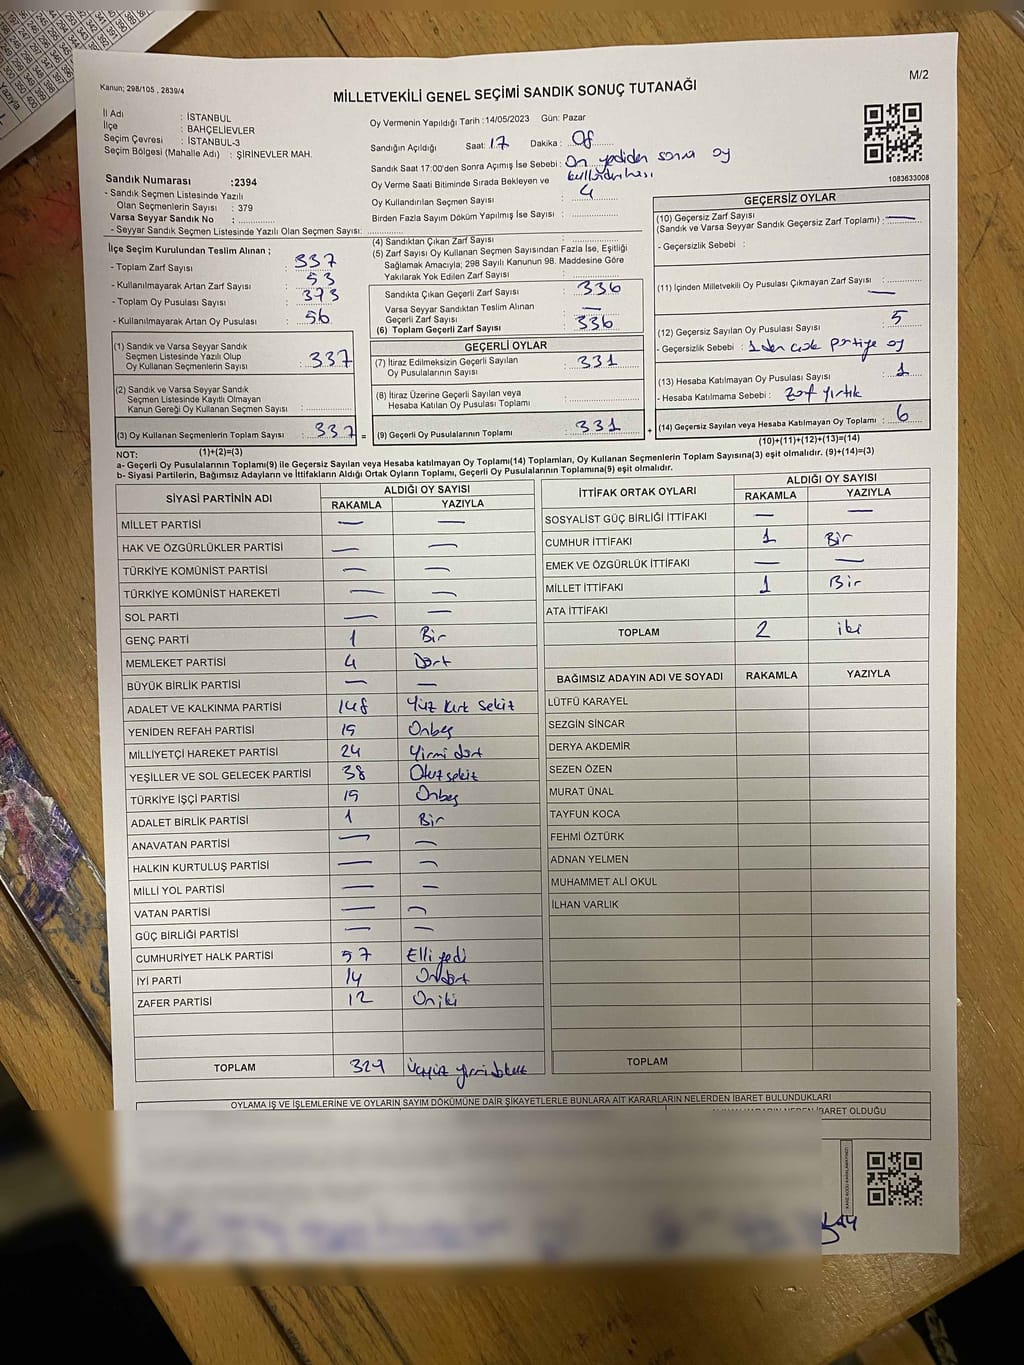 M/2
Kanun; 298/105 , 2839/4
MİLLETVEKİLİ GENEL SEÇİMİ SANDIK SONUÇ TUTANAĞI
İl Adı : İSTANBUL
İlçe : BAHÇELİEVLER
Seçim Çevresi : İSTANBUL-3
Seçim Bölgesi (Mahalle Adı) : ŞİRİNEVLER MAH.
Sandık Numarası :2394
- Sandık Seçmen Listesinde Yazılı
Olan Seçmenlerin Sayısı : 379
Varsa Seyyar Sandık No :
- Seyyar Sandık Seçmen Listesinde Yazılı Olan Seçmen Sayısı:
Oy Vermenin Yapıldığı Tarih :14/05/2023 Gün: Pazar
Sandığın Açıldığı Saat: 17 Dakika :
Sandık Saat 17:00'den Sonra Açımış İse Sebebi : On yediden sonra oy
kullanılması
Oy Verme Saati Bitiminde Sırada Bekleyen ve
Oy Kullandırılan Seçmen Sayısı : 4
Birden Fazla Sayım Döküm Yapılmış İse Sayısı :
1083633008
İlçe Seçim Kurulundan Teslim Alınan ;
- Toplam Zarf Sayısı : 337
- Kullanılmayarak Artan Zarf Sayısı : 53
- Toplam Oy Pusulası Sayısı : 373
- Kullanılmayarak Artan Oy Pusulası : 56
(1) Sandık ve Varsa Seyyar Sandık
Seçmen Listesinde Yazılı Olup
Oy Kullanan Seçmenlerin Sayısı : 337
(2) Sandık ve Varsa Seyyar Sandık
Seçmen Listesinde Kayıtlı Olmayan
Kanun Gereği Oy Kullanan Seçmen Sayısı :
(3) Oy Kullanan Seçmenlerin Toplam Sayısı : 337 =
(1)+(2)=(3)
(4) Sandıktan Çıkan Zarf Sayısı :
(5) Zarf Sayısı Oy Kullanan Seçmen Sayısından Fazla İse, Eşitliği
Sağlamak Amacıyla; 298 Sayılı Kanunun 98. Maddesine Göre
Yakılarak Yok Edilen Zarf Sayısı :
Sandıkta Çıkan Geçerli Zarf Sayısı : 336
Varsa Seyyar Sandıktan Teslim Alınan
Geçerli Zarf Sayısı : —
(6) Toplam Geçerli Zarf Sayısı : 336
GEÇERLİ OYLAR
(7) İtiraz Edilmeksizin Geçerli Sayılan
Oy Pusulalarının Sayısı : 331
(8) İtiraz Üzerine Geçerli Sayılan veya
Hesaba Katılan Oy Pusulası Toplamı :
(9) Geçerli Oy Pusulalarının Toplamı : 331 +
GEÇERSİZ OYLAR
(10) Geçersiz Zarf Sayısı
(Sandık ve Varsa Seyyar Sandık Geçersiz Zarf Toplamı) : —
- Geçersizlik Sebebi :
(11) İçinden Milletvekili Oy Pusulası Çıkmayan Zarf Sayısı : —
(12) Geçersiz Sayılan Oy Pusulası Sayısı : 5
- Geçersizlik Sebebi : 1 den çok partiye oy
(13) Hesaba Katılmayan Oy Pusulası Sayısı : 1
- Hesaba Katılmama Sebebi : zarf yırtık
(14) Geçersiz Sayılan veya Hesaba Katılmayan Oy Toplamı : 6
(10)+(11)+(12)+(13)=(14)
NOT:
a- Geçerli Oy Pusulalarının Toplamı(9) ile Geçersiz Sayılan veya Hesaba katılmayan Oy Toplamı(14) Toplamları, Oy Kullanan Seçmenlerin Toplam Sayısına(3) eşit olmalıdır. (9)+(14)=(3)
b- Siyasi Partilerin, Bağımsız Adayların ve İttifakların Aldığı Ortak Oyların Toplamı, Geçerli Oy Pusulalarının Toplamına(9) eşit olmalıdır.
SİYASİ PARTİNİN ADI ALDIĞI OY SAYISI
RAKAMLA YAZIYLA
MİLLET PARTİSİ — —
HAK VE ÖZGÜRLÜKLER PARTİSİ — —
TÜRKİYE KOMÜNİST PARTİSİ — —
TÜRKİYE KOMÜNİST HAREKETİ — —
SOL PARTİ — —
GENÇ PARTİ 1 Bir
MEMLEKET PARTİSİ 4 Dört
BÜYÜK BİRLİK PARTİSİ — —
ADALET VE KALKINMA PARTİSİ 148 Yüz Kırk Sekiz
YENİDEN REFAH PARTİSİ 15 Onbeş
MİLLİYETÇİ HAREKET PARTİSİ 24 Yirmi dört
YEŞİLLER VE SOL GELECEK PARTİSİ 38 Otuz sekiz
TÜRKİYE İŞÇİ PARTİSİ 15 Onbeş
ADALET BİRLİK PARTİSİ 1 Bir
ANAVATAN PARTİSİ — —
HALKIN KURTULUŞ PARTİSİ — —
MİLLİ YOL PARTİSİ — —
VATAN PARTİSİ — —
GÜÇ BİRLİĞİ PARTİSİ — —
CUMHURİYET HALK PARTİSİ 57 Elli yedi
İYİ PARTİ 14 Ondört
ZAFER PARTİSİ 12 Oniki
TOPLAM 329 Üçyüz yirmi dokuz
İTTİFAK ORTAK OYLARI ALDIĞI OY SAYISI
RAKAMLA YAZIYLA
SOSYALİST GÜÇ BİRLİĞİ İTTİFAKI — —
CUMHUR İTTİFAKI 1 Bir
EMEK VE ÖZGÜRLÜK İTTİFAKI — —
MİLLET İTTİFAKI 1 Bir
ATA İTTİFAKI
TOPLAM 2 iki
BAĞIMSIZ ADAYIN ADI VE SOYADI RAKAMLA YAZIYLA
LÜTFÜ KARAYEL
SEZGİN SİNCAR
DERYA AKDEMİR
SEZEN ÖZEN
MURAT ÜNAL
TAYFUN KOCA
FEHMİ ÖZTÜRK
ADNAN YELMEN
MUHAMMET ALİ OKUL
İLHAN VARLIK
TOPLAM
OYLAMA İŞ VE İŞLEMLERİNE VE OYLARIN SAYIM DÖKÜMÜNE DAİR ŞİKAYETLERLE BUNLARA AİT KARARLARIN NELERDEN İBARET BULUNDUKLARI
NEDEN İBARET OLDUĞU